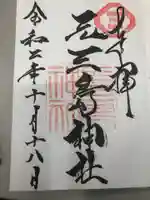 奉拝
三島神社
令和二年十月十八日